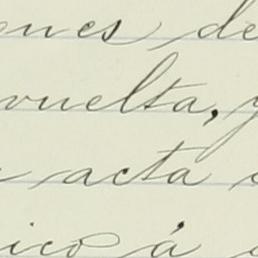 ones de
vuelta, y
acta
ico á